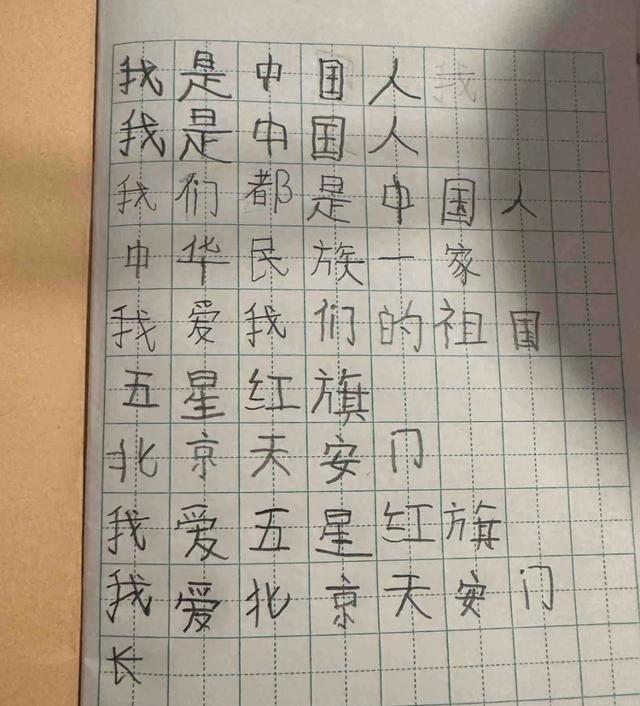 我是中国人
我是中国人
我们都是中国人
中华民族一家
我爱我们的祖国
五星红旗
北京天安门
我爱五星红旗
我爱北京天安门
长